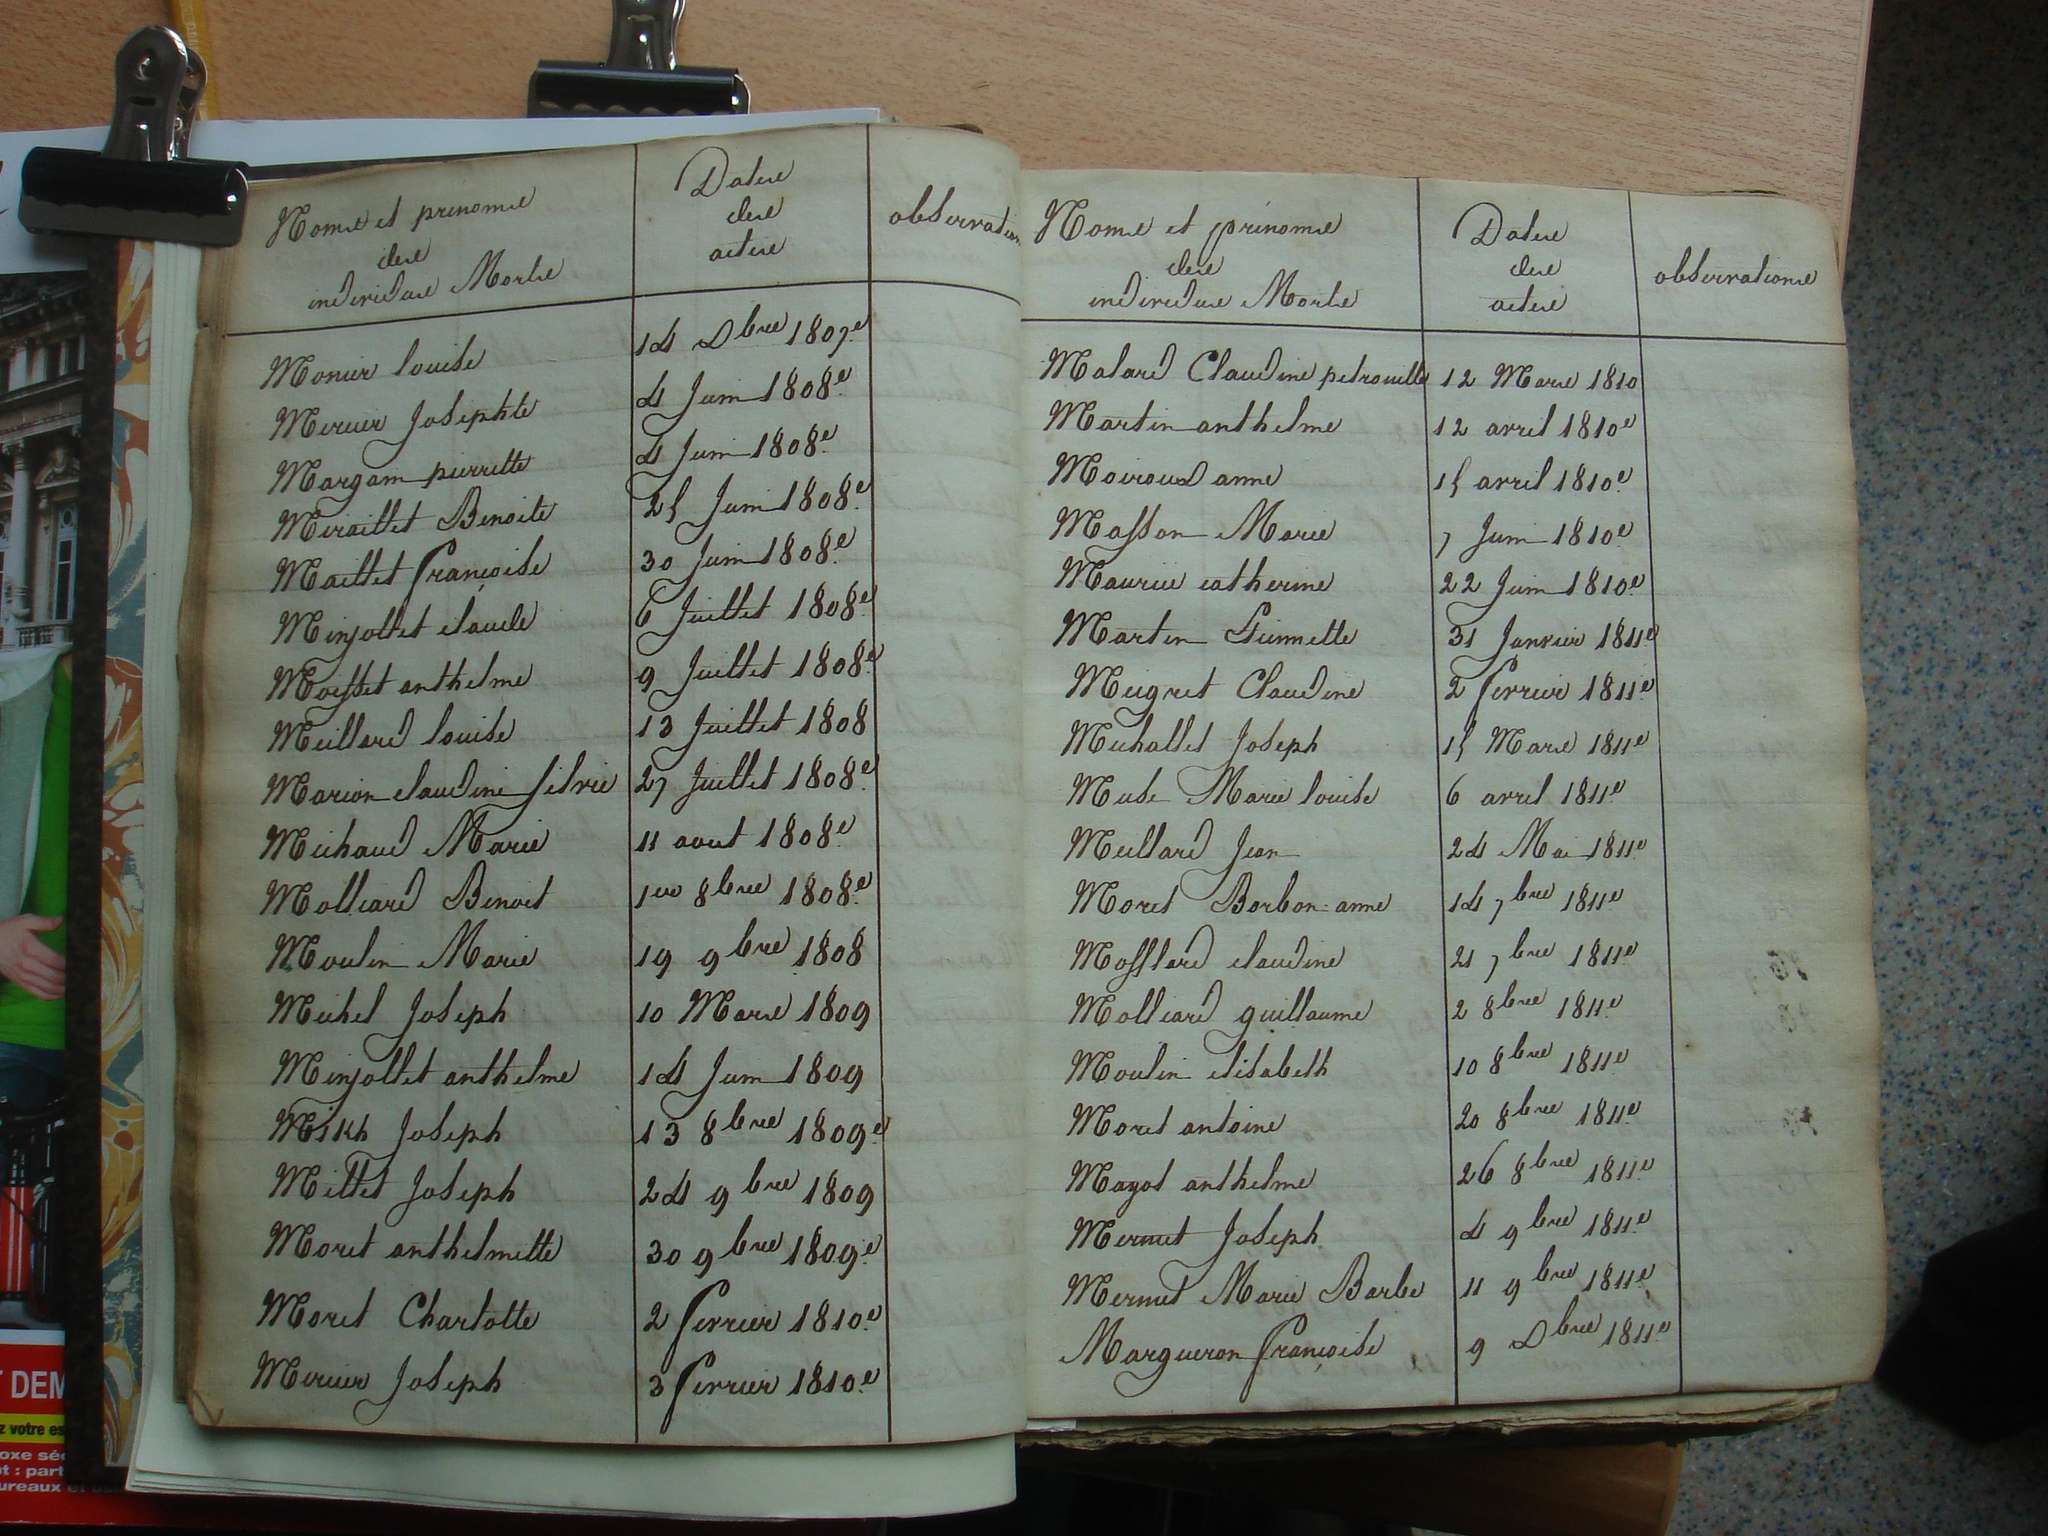 Noms et prénoms
des
individus Morts
Dates
des
actes
observation
Monier louise 14 Dbre 1807.e
Mercier Josephte 4 Juin 1808.e
Margain pierrette 4 Juin 1808.e
Miraillet Benoite 25 Juin 1808.e
Maillet françoise 30 Juin 1808.e
Minjollet claude 6 Juillet 1808.e
anthelme 9 Juillet 1808.e
Meillard louise 13 Juillet 1808
Marion claudine silvie 27 Juillet 1808.e
Michaud Marie 11 aout 1808.e
Molliard Benoit 1er 8bre 1808.e
Moulin Marie 19 9bre 1808
Michel Joseph 10 Mars 1809
Minjollet anthelme 14 Juin 1809
Joseph 13 8bre 1809.e
Millet Joseph 24 9bre 1809
Moret anthelmette 30 9bre 1809.e
Moret Charlotte 2 fevrier 1810.e
Mercier Joseph 3 fevrier 1810.e
Noms et prénoms
des
individus Morts
Dates
des
actes
observations
Malard Claudine petronille 12 Mars 1810
Martin anthelme 12 avril 1810.e
Moiroud anne 15 avril 1810.e
Masson Marie 7 Juin 1810.e
Maurice catherine 22 Juin 1810.e
Martin 31 Janvier 1811.e
Meigret Claudine 2 fevrier 1811.e
Michallet Joseph 15 Mars 1811.e
Marie louise 6 avril 1811.e
Meillard Jean 24 Mai 1811.e
Moret Borbon anne 14 7bre 1811.e
claudine 21 7bre 1811.e
Molliard guillaume 2 8bre 1811.e
Moulin elisabeth 10 8bre 1811.e
Moret antoine 20 8bre 1811.e
Mayot anthelme 26 8bre 1811.e
Mermet Joseph 4 9bre 1811.e
Mermet Marie Barbe 11 9bre 1811.e
Margueron françoise 9 Dbre 1811.e
T DEM
z votre es
oxe sé
t : part
ureaux et